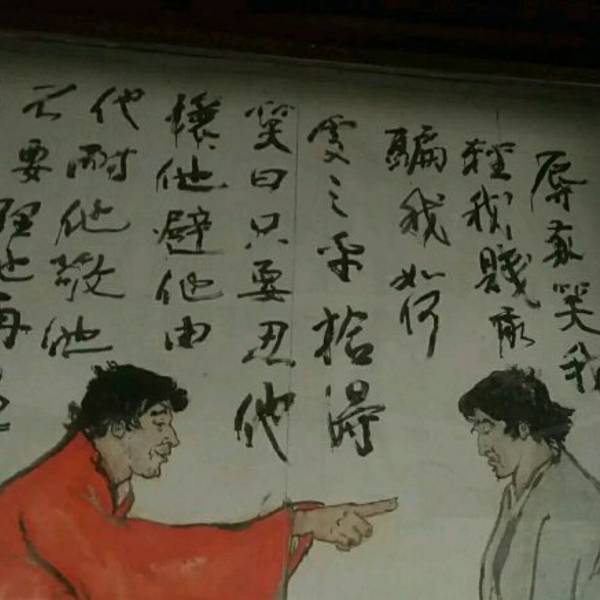 辱我笑我
輕我賤我
騙我如何
處之乎拾得
笑曰只要忍他
懷他避他由
他耐他敬他
不要理他再